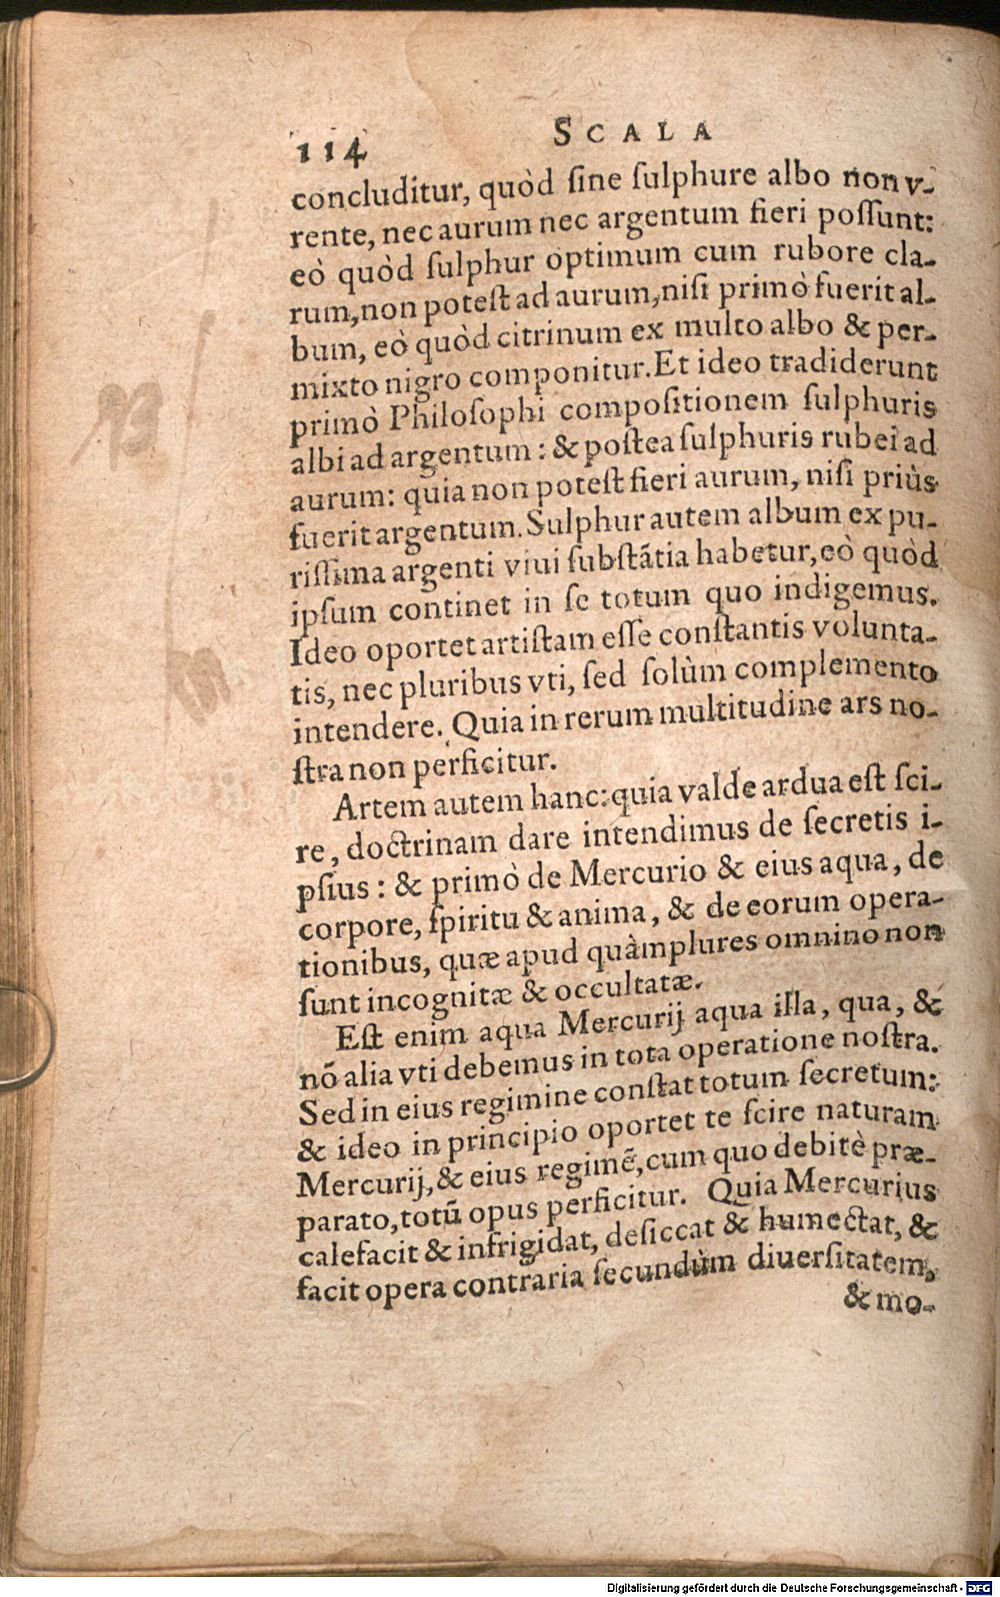 114 SCALA
concluditur, quòd ſine ſulphure albo non v-
rente, nec aurum nec argentum fieri poſſunt:
eò quòd ſulphur optimum cum rubore cla-
rum, non poteſt ad aurum, niſi primò fuerit al-
bum, eò quòd citrinum ex multo albo & per-
mixto nigro componitur. Et ideo tradiderunt
primò Philoſophi compoſitionem ſulphuris
albi ad argentum: & poſtea ſulphuris rubei ad
aurum: quia non poteſt fieri aurum, niſi priùs
fuerit argentum. Sulphur autem album ex pu-
riſſima argenti viui ſubſtãtia habetur, eò quòd
ipſum continet in ſe totum quo indigemus.
Ideo oportet artiſtam eſſe conſtantis volunta-
tis, nec pluribus vti, ſed ſolùm complemento
intendere. Quia in rerum multitudine ars no-
ſtra non perficitur.
Artem autem hanc: quia valde ardua eſt ſci-
re, doctrinam dare intendimus de ſecretis i-
pſius: & primò de Mercurio & eius aqua, de
corpore, ſpiritu & anima, & de eorum opera-
tionibus, quæ apud quàmplures omnino non
ſunt incognitæ & occultatæ.
Eſt enim aqua Mercurij aqua illa, qua, &
nõ alia vti debemus in tota operatione noſtra.
Sed in eius regimine conſtat totum ſecretum:
& ideo in principio oportet te ſcire naturam
Mercurij, & eius regimẽ, cum quo debitè præ-
parato, totũ opus perficitur. Quia Mercurius
calefacit & infrigidat, deſiccat & humectat, &
facit opera contraria ſecundùm diuerſitatem,
& mo-
Digitalisierung gefördert durch die Deutsche Forschungsgemeinschaft - DFG